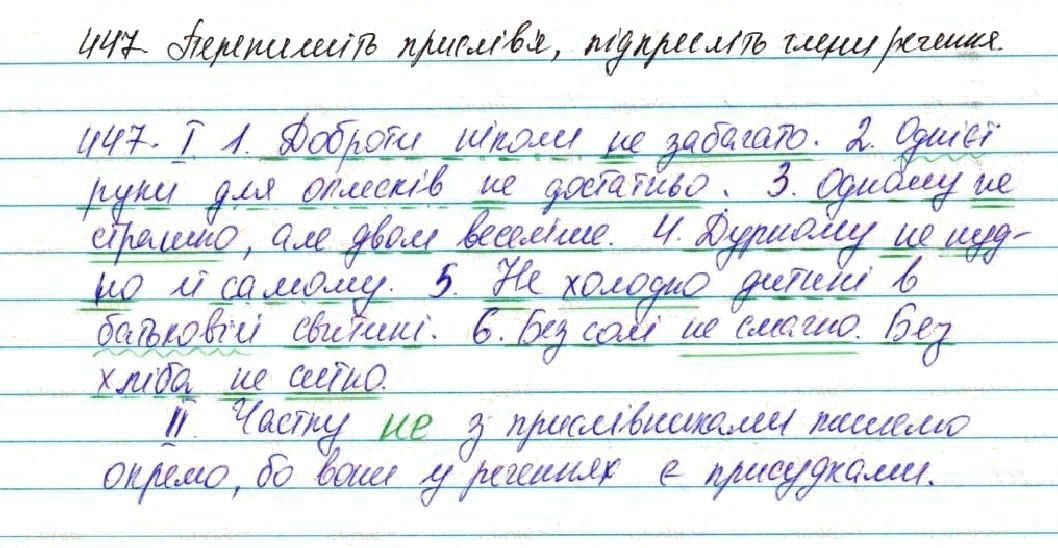 447. Перепишіть прислів'я, підкресліть члени речення.
447. I 1. Доброти ніколи не забагато. 2. Однієї
руки для оплесків не достатньо. 3. Одному не
страшно, але двом веселіше. 4. Дурному не нуд-
но й самому. 5. Не холодно дитині в
батьковій свитині. 6. Без солі не смачно. Без
хліба не ситно.
II. Частку не з прислівниками пишемо
окремо, бо вони у реченнях є присудками.